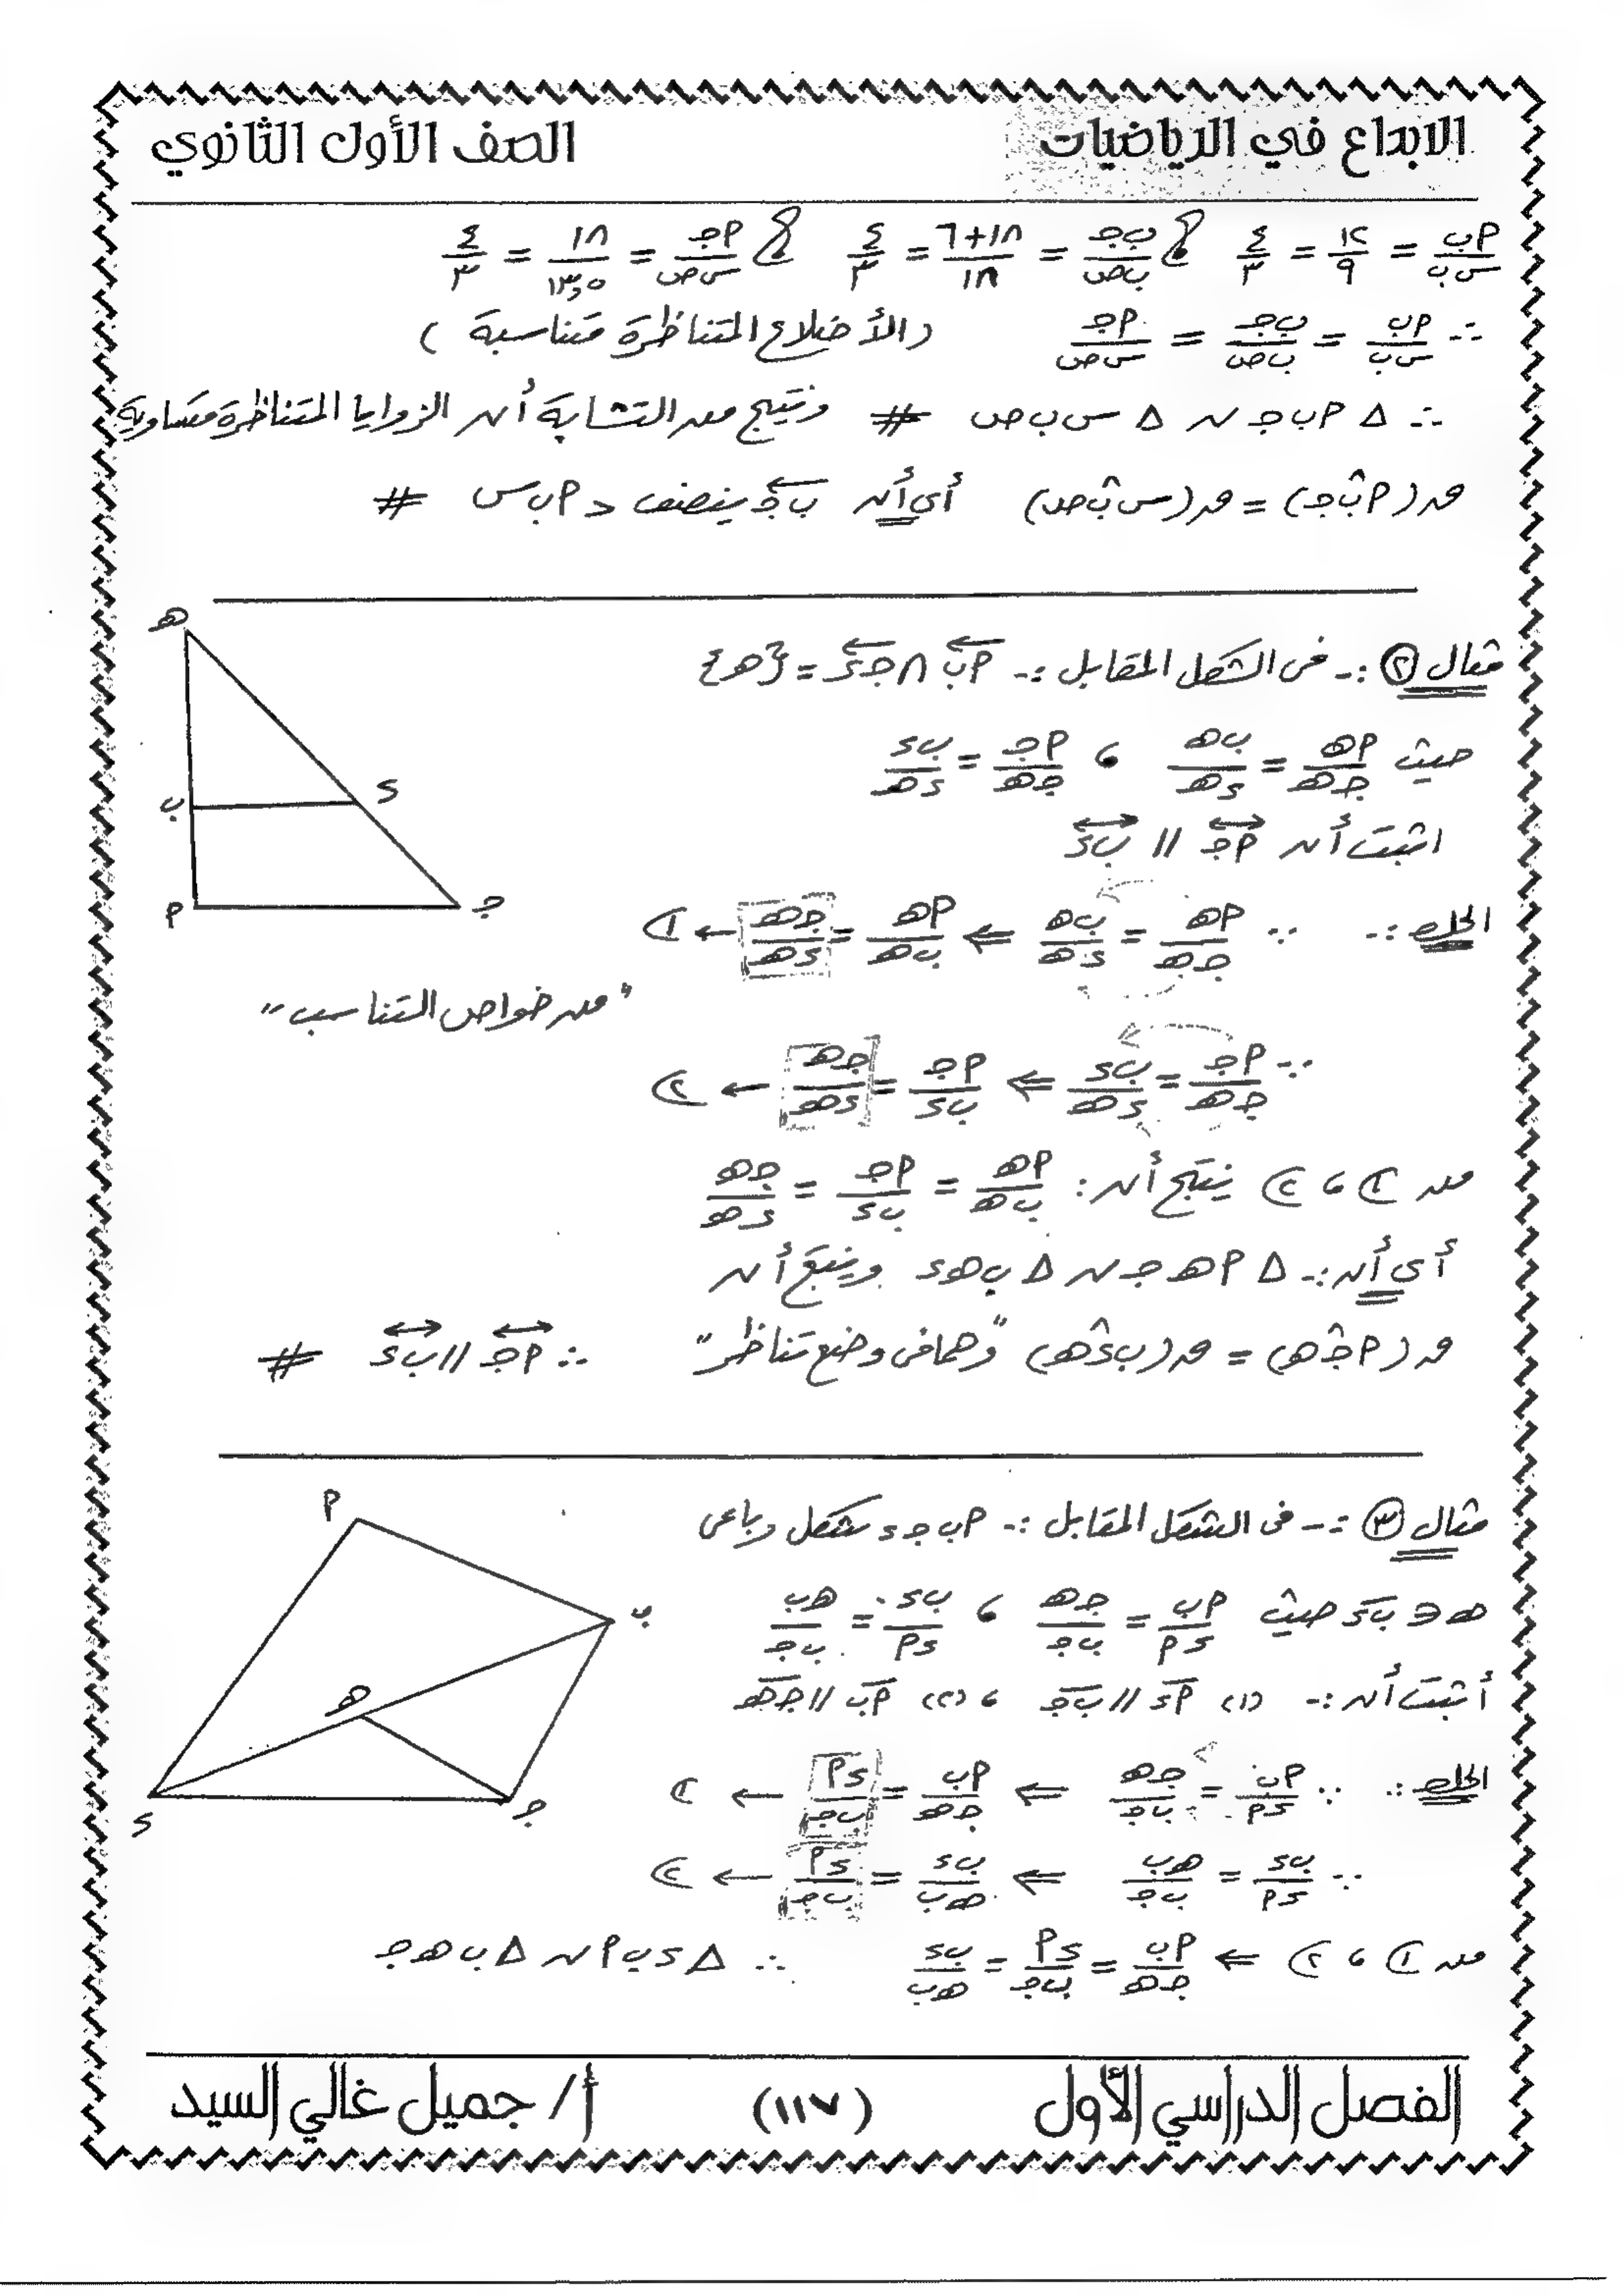 الابداع في الرياضيات الصف الأول الثانوي
أب/س ب = ١٢/٩ = ٤/٣ ، ب جـ/ب ص = (١٨+٦)/١٨ = ٤/٣ ، أجـ/س ص = ١٨/١٣,٥ = ٤/٣
∴ أب/س ب = ب جـ/ب ص = أجـ/س ص (الأضلاع المتناظرة متناسبة)
∴ Δ أ ب جـ ~ Δ س ب ص # وينتج من التشابه أن الزوايا المتناظرة متساوية
ق(أ ب̂ جـ) = ق(س ب̂ ص) أى أن ب جـ ينصف > أ ب س #
هـ
ب
د
أ
جـ
مثال (٢) :- فى الشكل المقابل :- أب ∩ جـد = {هـ}
حيث أهـ/جـهـ = ب هـ/د هـ ، أجـ/جـهـ = ب د/د هـ
اثبت أن أجـ // ب د
الحل :- ∵ أهـ/جـهـ = ب هـ/د هـ ⇐ أهـ/ب هـ = جـهـ/د هـ ← (١)
"من خواص التناسب"
∵ أجـ/جـهـ = ب د/د هـ ⇐ أجـ/ب د = جـهـ/د هـ ← (٢)
من (١) ، (٢) ينتج أن : أهـ/ب هـ = أجـ/ب د = جـهـ/د هـ
أى أن :- Δ أ هـ جـ ~ Δ ب هـ د وينتج أن
ق(أ جـ̂ هـ) = ق(ب د̂ هـ) "وهما فى وضع تناظر" ∴ أجـ // ب د #
أ
ب
هـ
د
جـ
مثال (٣) :- فى الشكل المقابل :- أ ب جـ د شكل رباعى
هـ ∈ ب د حيث أب/د أ = جـهـ/ب جـ ، ب د/د أ = هـ ب/ب جـ
أثبت أن :- (١) أد // ب جـ ، (٢) أب // جـهـ
الحل :- ∵ أب/د أ = جـهـ/ب جـ ⇐ أب/جـهـ = د أ/ب جـ ← (١)
∵ ب د/د أ = هـ ب/ب جـ ⇐ ب د/هـ ب = د أ/ب جـ ← (٢)
من (١) ، (٢) ⇐ أب/جـهـ = د أ/ب جـ = ب د/هـ ب ∴ Δ د ب أ ~ Δ ب هـ جـ
الفصل الدراسي الأول (١١٧) أ/ جميل غالي السيد